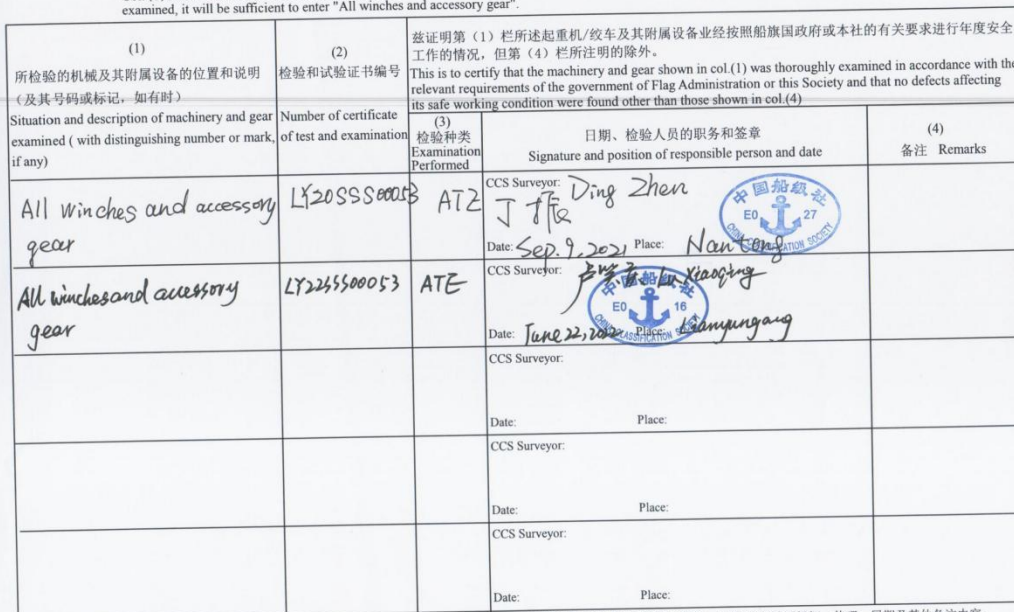 examined, it will be sufficient to enter "All winches and accessory gear".
(1)
所检验的机械及其附属设备的位置和说明
（及其号码或标记，如有时）
Situation and description of machinery and gear
examined ( with distinguishing number or mark,
if any)
(2)
检验和试验证书编号
Number of certificate
of test and examination
兹证明第（1）栏所述起重机/绞车及其附属设备业经按照船旗国政府或本社的有关要求进行年度安全
工作的情况，但第（4）栏所注明的除外。
This is to certify that the machinery and gear shown in col.(1) was thoroughly examined in accordance with the
relevant requirements of the government of Flag Administration or this Society and that no defects affecting
its safe working condition were found other than those shown in col.(4)
(3)
检验种类
Examination
Performed
日期、检验人员的职务和签章
Signature and position of responsible person and date
(4)
备注 Remarks
All winches and accessory
gear
LY20SSS00053
ATZ
CCS Surveyor: Ding Zhen
丁振
Date: Sep. 9, 2021 Place: Nantong
中国船级社
E0 27
CHINA CLASSIFICATION SOCIETY
All winches and accessory
gear
LY22SSS00053
ATE
CCS Surveyor: Lu Xiaoqing
Date: June 22, 2022 Place: Lianyungang
中国船级社
E0 16
CHINA CLASSIFICATION SOCIETY
CCS Surveyor:
Date: Place:
CCS Surveyor:
Date: Place:
CCS Surveyor:
Date: Place: